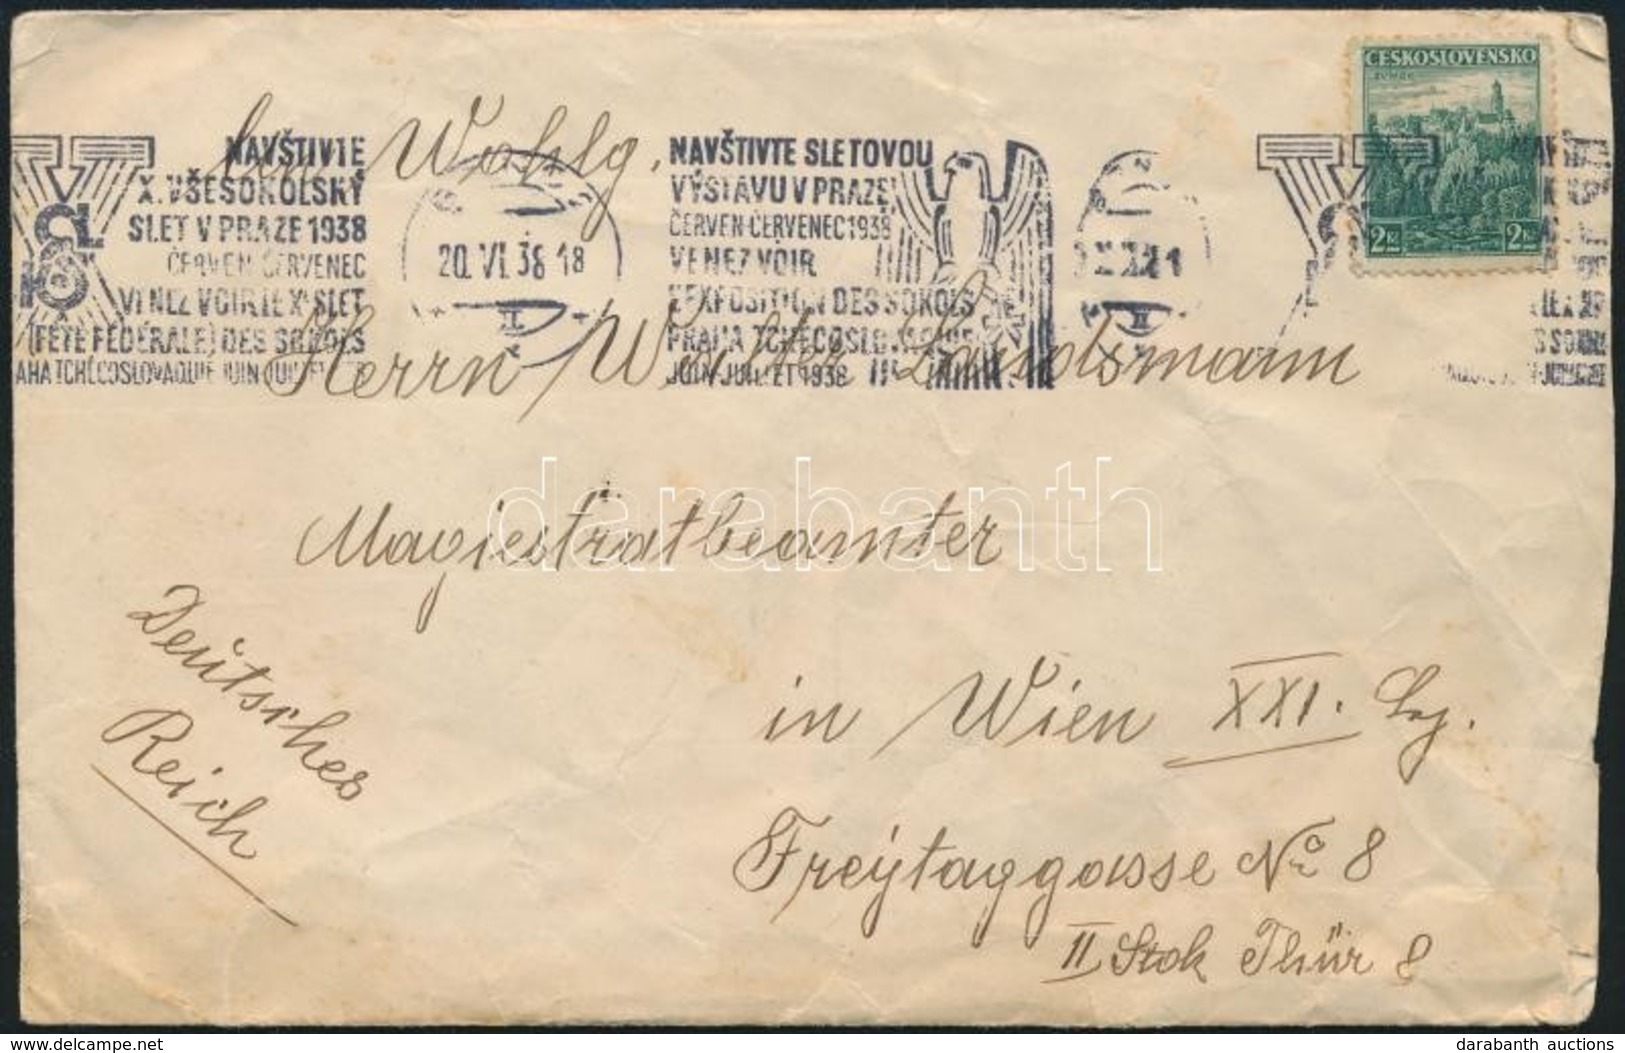 ČESKOSLOVENSKO
ZVÍKOV
2 Kč 2 Kč
NAVŠTIVTE
X. VŠESOKOLSKÝ
SLET V PRAZE 1938
ČERVEN-ČERVENEC
VENEZ VOIR LE Xe SLET
(FÊTE FÉDÉRALE) DES SOKOLS
AHA TCHÉCOSLOVAQUIE JUIN-JUILLET
20. VI. 38-18
NAVŠTIVTE SLETOVOU
VÝSTAVU V PRAZE,
ČERVEN-ČERVENEC 1938
VENEZ VOIR
L'EXPOSITION DES SOKOLS
PRAHA TCHÉCOSLOVAQUIE
JUIN-JUILLET 1938
Wohlg.
Herrn Walter Landsmann
Magiestratbeamter
Deutsches
Reich
in Wien XXI.
Freytaggasse No 8
II Stok Thür 8
darabanth
delcampe.net
darabanth auctions